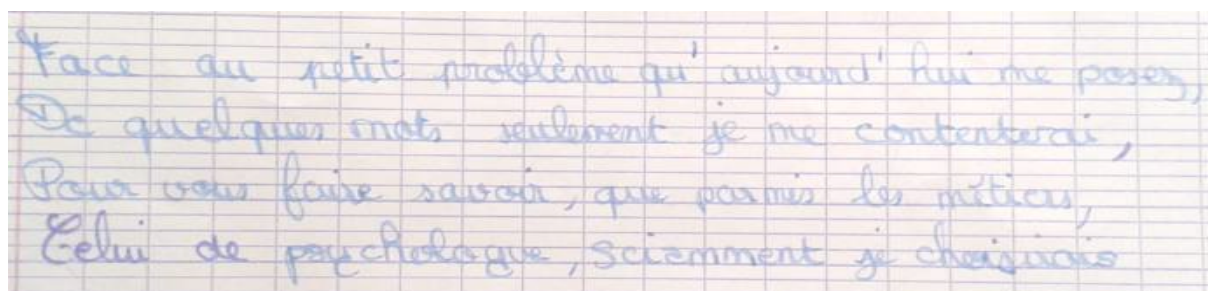 Face au petit problème qu'aujourd'hui me posez,
De quelques mots seulement je me contenterai,
Pour vous faire savoir, que parmis les métiers,
Celui de psychologue, sciemment je choisirais